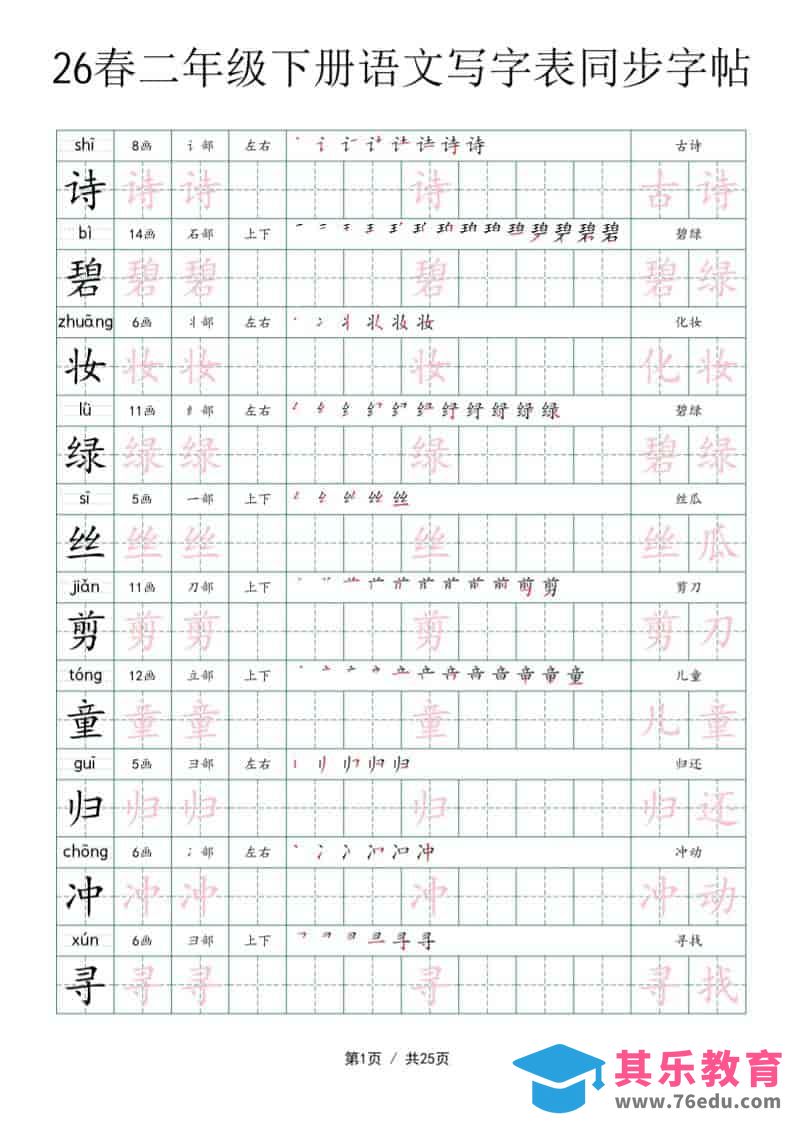 26春二年级下册语文写字表同步字帖
shī 8画 讠部 左右 丶 讠 诗 诗 古诗
诗 诗 诗 诗 古 诗
bì 14画 石部 上下 碧 碧 碧绿
碧 碧 碧 碧 碧 绿
zhuāng 6画 丬部 左右 丶 冫 丬 妆 妆 化妆
妆 妆 妆 妆 化 妆
lǜ 11画 纟部 左右 纟 绿 绿 碧绿
绿 绿 绿 绿 碧 绿
sī 5画 一部 上下 纟 丝 丝 丝瓜
丝 丝 丝 丝 丝 瓜
jiǎn 11画 刀部 上下 前 剪 剪 剪刀
剪 剪 剪 剪 剪 刀
tóng 12画 立部 上下 丶 亠 立 音 童 童 儿童
童 童 童 童 儿 童
guī 5画 彐部 左右 丨 归 归 归还
归 归 归 归 归 还
chōng 6画 冫部 左右 丶 冫 冲 冲动
冲 冲 冲 冲 冲 动
xún 6画 彐部 上下 彐 寻 寻 寻找
寻 寻 寻 寻 寻 找
第1页 / 共25页
其乐教育
www.76edu.com